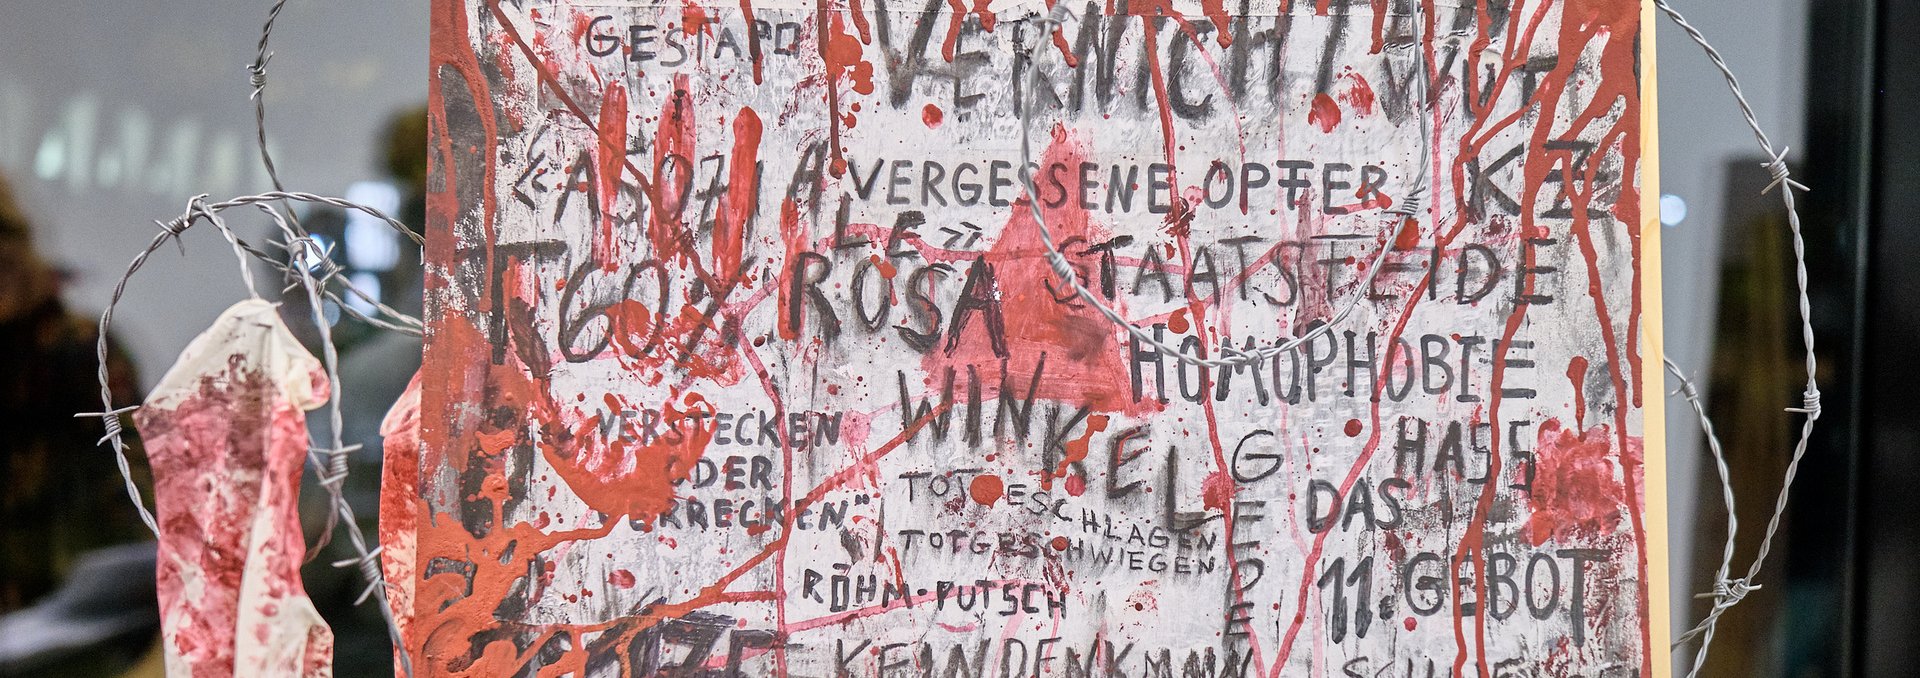 GESTAPO
VERNICHTEN
WUT
«ASOZIALE»
VERGESSENE OPFER
KZ
60%
ROSA
WINKEL
STAATSFEIDE
HOMOPHOBIE
VERSTECKEN
ODER
VERRECKEN"
TOTGESCHLAGEN
TOTGESCHWIEGEN
RÖHM-PUTSCH
HASS
DAS
11. GEBOT
KEIN DENKMAL